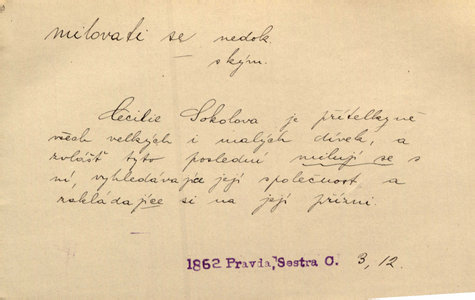 milovati se nedok.
ským.
Cecilie Sokolova je přítelkyně
všech velkých i malých dívek, a
zvlášť tyto poslední milují se s
ní, vyhledávajíce její společnost a
zakládajíce si na její přízni.
1862 Pravda, Sestra C. 3, 12.